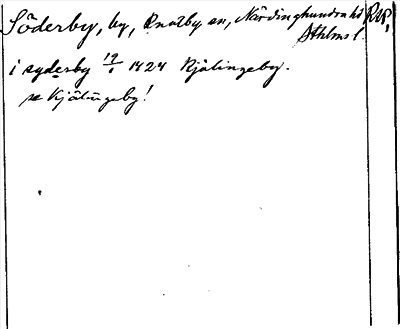 Söderby, by, Knutby sn, Närdinghundra hd RAP.
Sthlms l.
i syderby 19/1 1424 Kjälingeby.
se Kjälingeby!